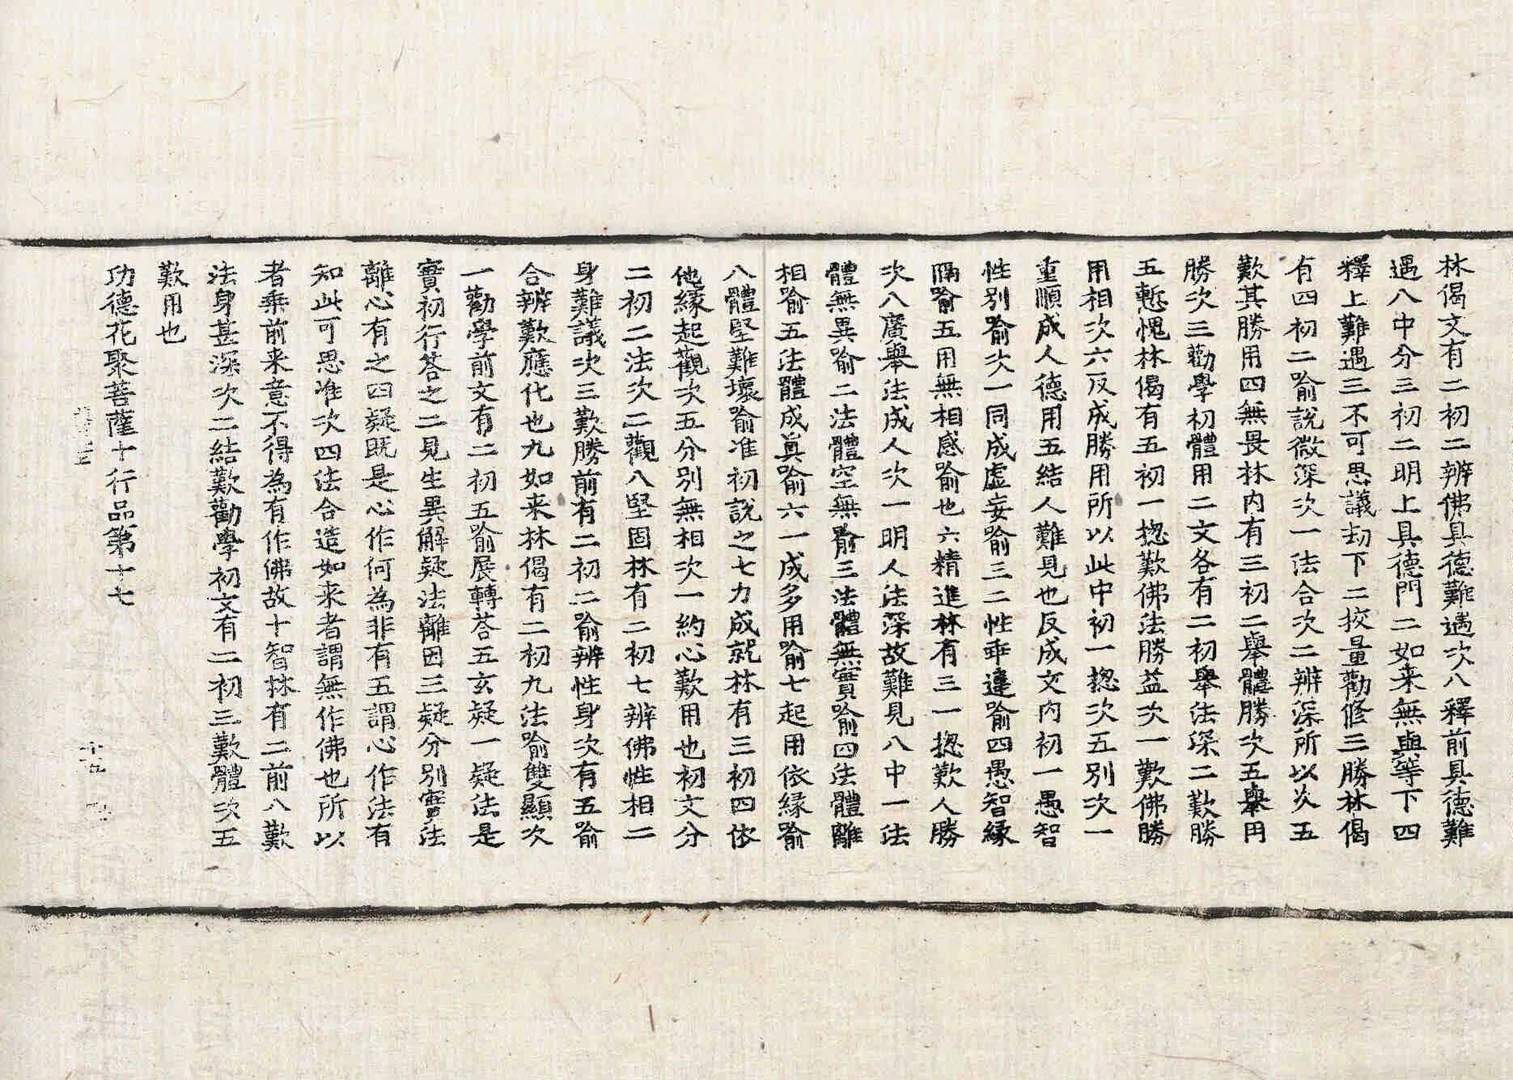 林偈文有二初二辨佛具德難遇次八釋前具德難
遇八中分三初二明上具德門二如来無與等下四
釋上難遇三不可思議刧下二挍量勸修三勝林偈
有四初二喻説微深次一法合次二辨深所以次五
歎其勝用四無畏林内有三初二舉體勝次五舉用
勝次三勸學初體用二文各有二初舉法深二歎勝
五慙愧林偈有五初一揔歎佛法勝益次一歎佛勝
用相次六反成勝用所以此中初一揔次五別次一
重順成人德用五結人難見也反成文内初一愚智
性別喻次一同成虚妄喻三二性乖違喻四愚智縁
隔喻五用無相感喻也六精進林有三一揔歎人勝
次八廣舉法成人次一明人法深故難見八中一法
體無異喻二法體空無喻三法體無實喻四法體離
相喻五法體成眞喻六一成多用喻七起用依縁喻
八體堅難壞喻准初説之七力成就林有三初四依
他縁起觀次五分別無相次一約心歎用也初文分
二初二法次二觀八堅固林有二初七辨佛性相二
身難議次三歎勝前有二初二喻辨性身次有五喻
合辨歎應化也九如来林偈有二初九法喻雙顯次
一勸學前文有二初五喻展轉荅五玄疑一疑法是
實初行荅之二見生異解疑法離因三疑分別實法
離心有之四疑既是心作何為非有五謂心作法有
知此可思准次四法合造如来者謂無作佛也所以
者乘前来意不得為有作佛故十智林有二前八歎
法身甚深次二結歎勸學初文有二初三歎體次五
歎用也
功德花聚菩薩十行品第十七
十五